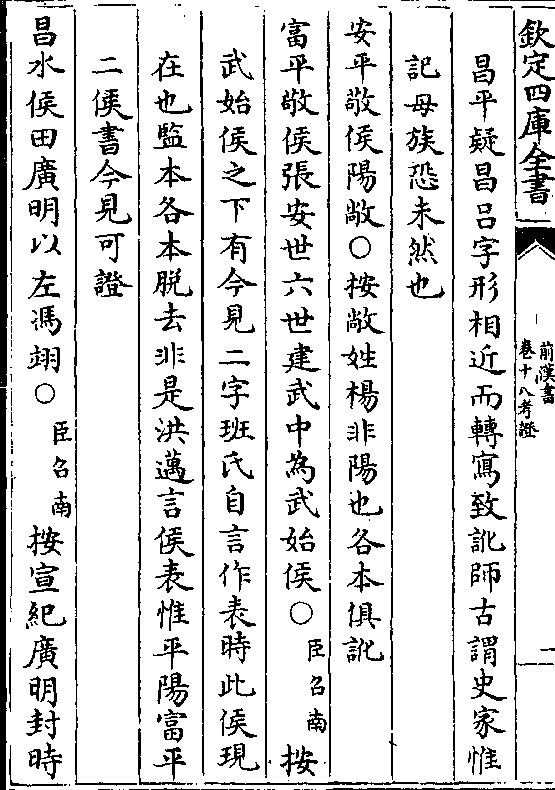 欽定四庫全書
前漢書
卷十八考證
一
昌平疑昌吕字形相近而轉寫致訛師古謂史家惟
記母族恐未然也
安平敬侯陽敞○按敞姓楊非陽也各本俱訛
富平敬侯張安世六世建武中為武始侯○臣召南按
武始侯之下有今見二字班氏自言作表時此侯現
在也監本各本脱去非是洪邁言侯表惟平陽富平
二侯書今見可證
昌水侯田廣明以左馮翊○臣召南按宣紀廣明封時